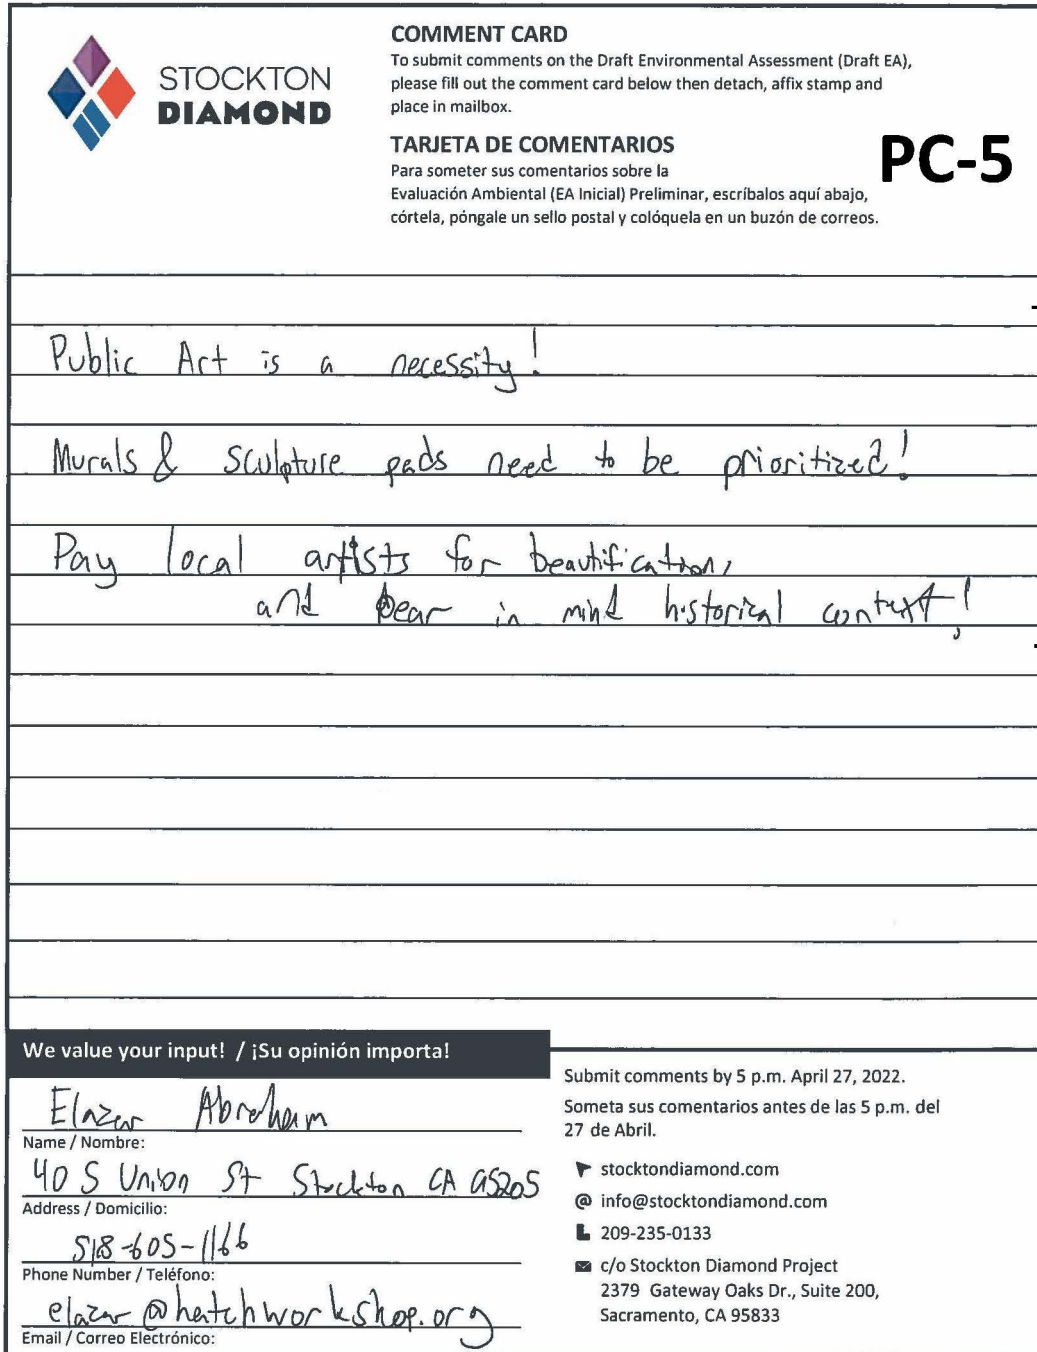 STOCKTON
DIAMOND
COMMENT CARD
To submit comments on the Draft Environmental Assessment (Draft EA),
please fill out the comment card below then detach, affix stamp and
place in mailbox.
TARJETA DE COMENTARIOS
Para someter sus comentarios sobre la
Evaluación Ambiental (EA Inicial) Preliminar, escríbalos aquí abajo,
córtela, póngale un sello postal y colóquela en un buzón de correos.
PC-5
Public Art is a necessity!
Murals & sculpture pads need to be prioritized!
Pay local artists for beautification,
and bear in mind historical context!
We value your input! / ¡Su opinión importa!
Elazar Abraham
Name / Nombre:
40 S Union St Stockton CA 95205
Address / Domicilio:
518-605-1166
Phone Number / Teléfono:
elazar@hatchworkshop.org
Email / Correo Electrónico:
Submit comments by 5 p.m. April 27, 2022.
Someta sus comentarios antes de las 5 p.m. del
27 de Abril.
stocktondiamond.com
@ info@stocktondiamond.com
209-235-0133
c/o Stockton Diamond Project
2379 Gateway Oaks Dr., Suite 200,
Sacramento, CA 95833